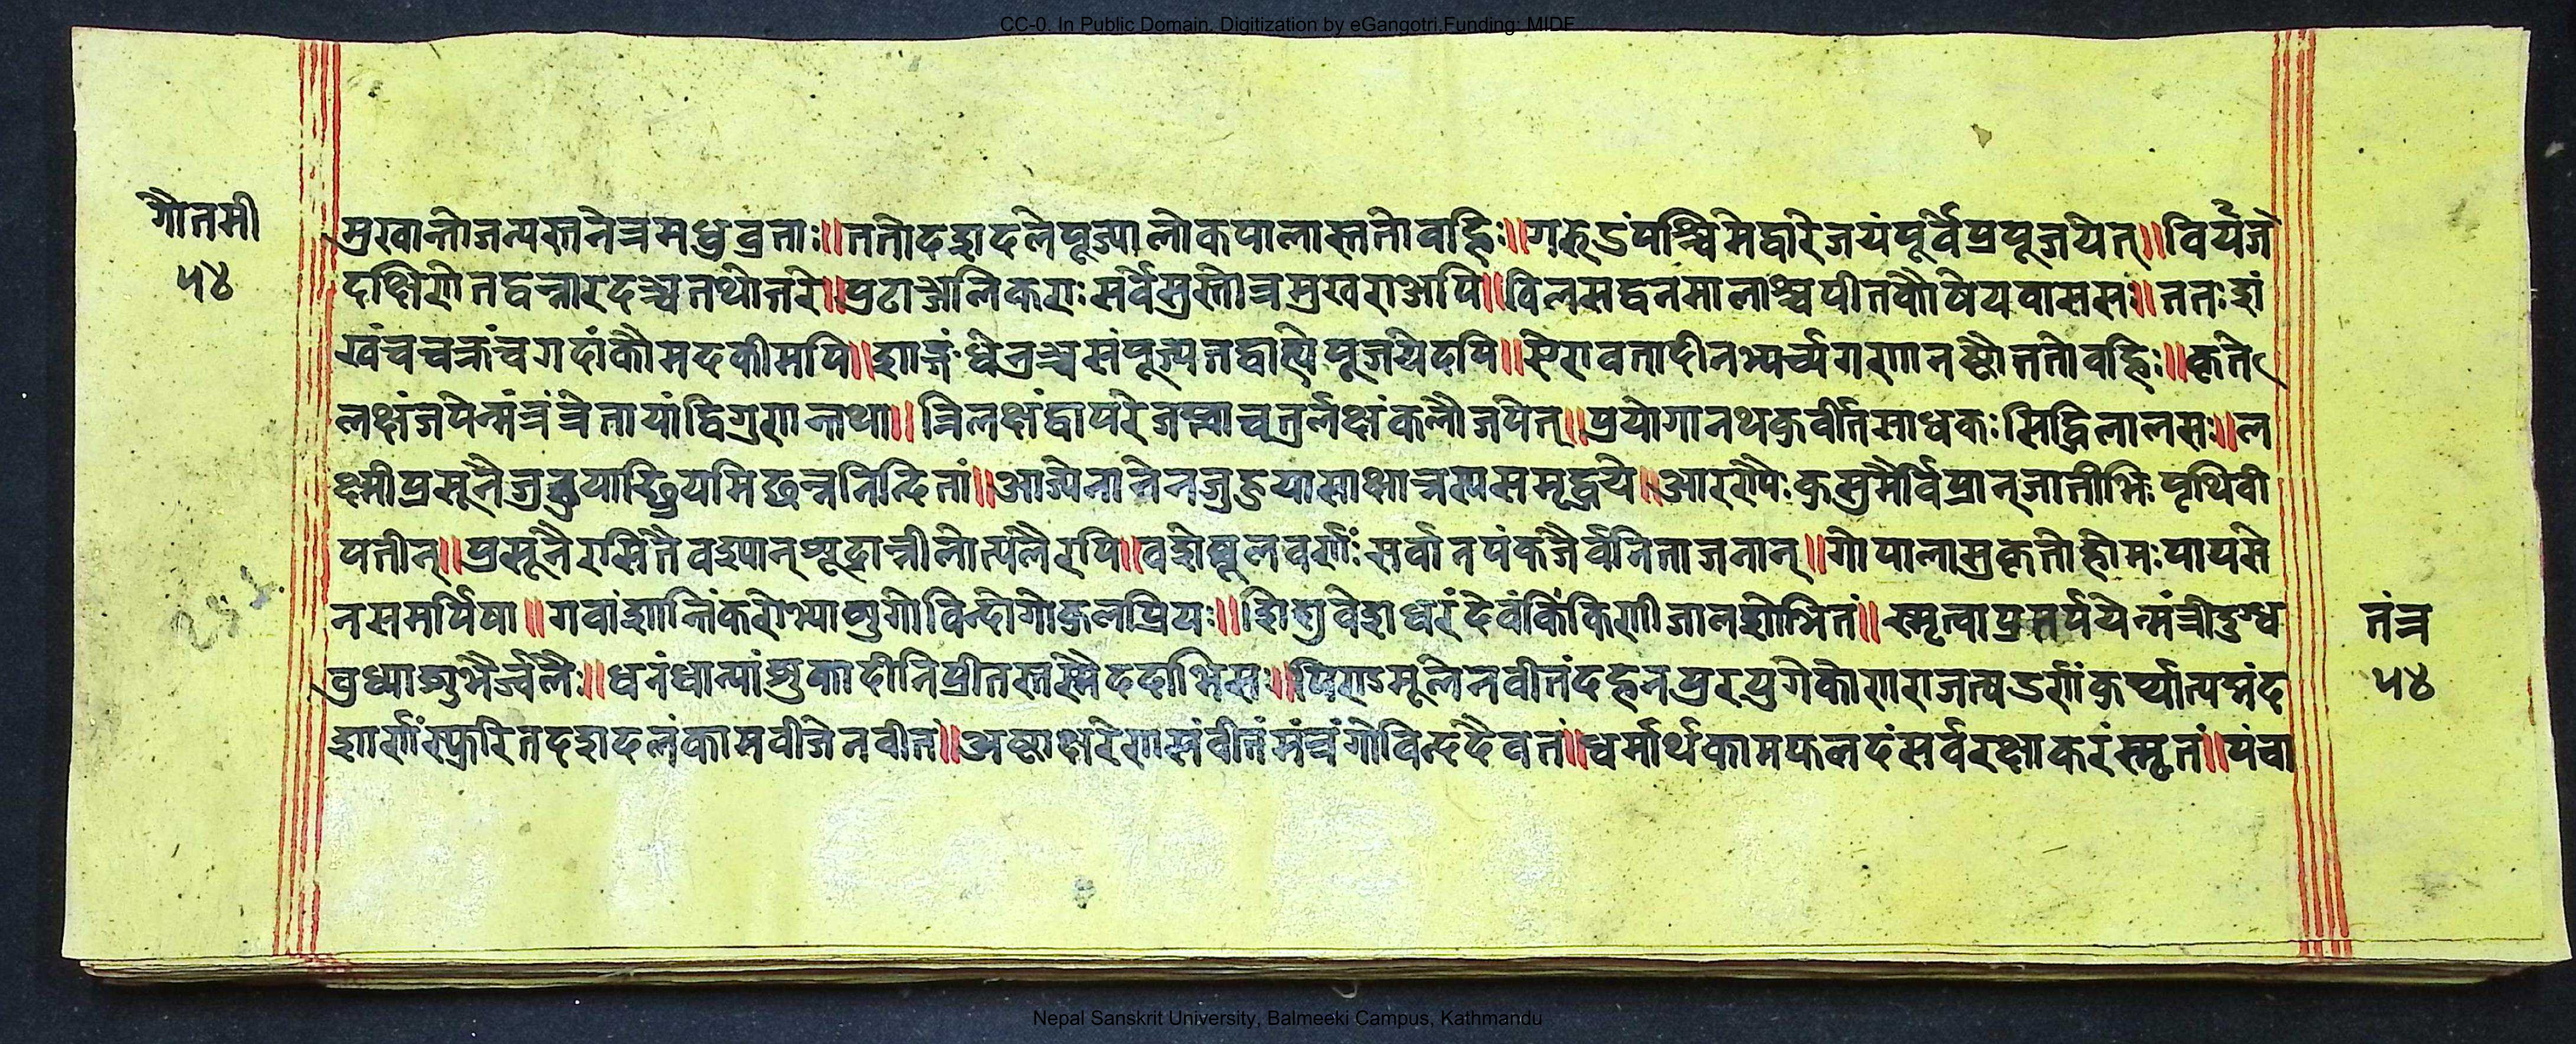 CC-0. In Public Domain. Digitization by eGangotri.Funding: MIDF
गौतमी
५४
मुखान्तोजत्यस्तनेत्रमधुव्रताः॥ततोदशदलेपूज्यालोकपालास्ततोवहिः॥गरुडंपश्चिमेद्वारेजयंपूर्वेप्रपूजयेत्॥विर्यजं
दक्षिणेतद्वन्नारदञ्चतथोत्तरे॥प्रटाञ्जलिकराःसर्वेसुस्तोत्रमुखराअपि॥विलसद्वनमालाश्चपीतकौषेयवाससः॥ततःशं
खंचचक्रंचगदांकौमदकीमपि॥शार्ङ्गंध्वेत्रञ्चसंपूज्यतद्वाह्येपूजयेदपि॥ऐरावतादीनभ्यर्च्यगणानष्टौततोवहिः॥कृते
लक्षंजपेन्मंत्रंत्रेतायांद्विगुणन्तथा॥त्रिलक्षंद्वापरेजप्त्वाचतुर्लक्षंकलौजपेत्॥प्रयोगानथकुर्वीतसाधकःसिद्धिलालसः॥ल
क्ष्मीप्रसूनैजुहुयाच्छ्रियमिछन्ननिन्दितां॥आज्येनान्नेनजुहुयासाक्षान्नस्यसमृद्धये॥आरण्यैःकुसुमैर्विप्रान्जातीभिःपृथिवी
पतीन्॥प्रसूनैरसितैवश्यान्शूद्रान्नीलोत्पलैरपि॥वशेल्लूलवर्णैःसर्वानपंकजैर्वनिताजनान्॥गोपालासुकृतोहोमःपायसे
नसमर्पिषा॥गवांशान्तिंकरोभ्याशुगोविन्दोगोकुलप्रियः॥शिशुवेशधरंदेवंकिंकिणीजालशोभितं॥स्मृत्वाप्रतर्पयेन्मंत्रीदुग्ध
वुध्याशुभैर्जलैः॥धनंधान्यांशुकादीनिप्रीतस्तस्मैददाभिसः॥पिण्डमूलेनवीतंदहनपुरयुगेकोणराजत्षडर्णंकुर्य्यात्पद्मंद
शार्णंस्फुरितदशदलंकामवीजेनवीतं॥अष्टाक्षरेणसंवीतंमंत्रंगोविन्ददैवतं॥धर्मार्थकामफलदंसर्वरक्षाकरंस्मृतं॥पंचा
तंत्र
५४
Nepal Sanskrit University, Balmeeki Campus, Kathmandu